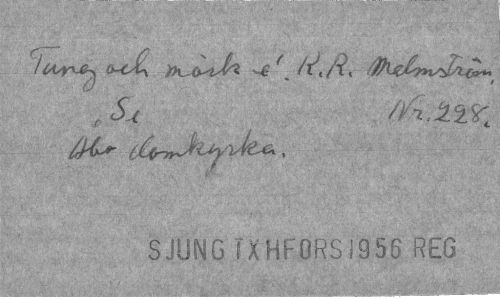 Tung och mörk é. K. R. Malmström.
Se Nr. 228.
Åbo domkyrka.
SJUNG TXHFORS 1956 REG